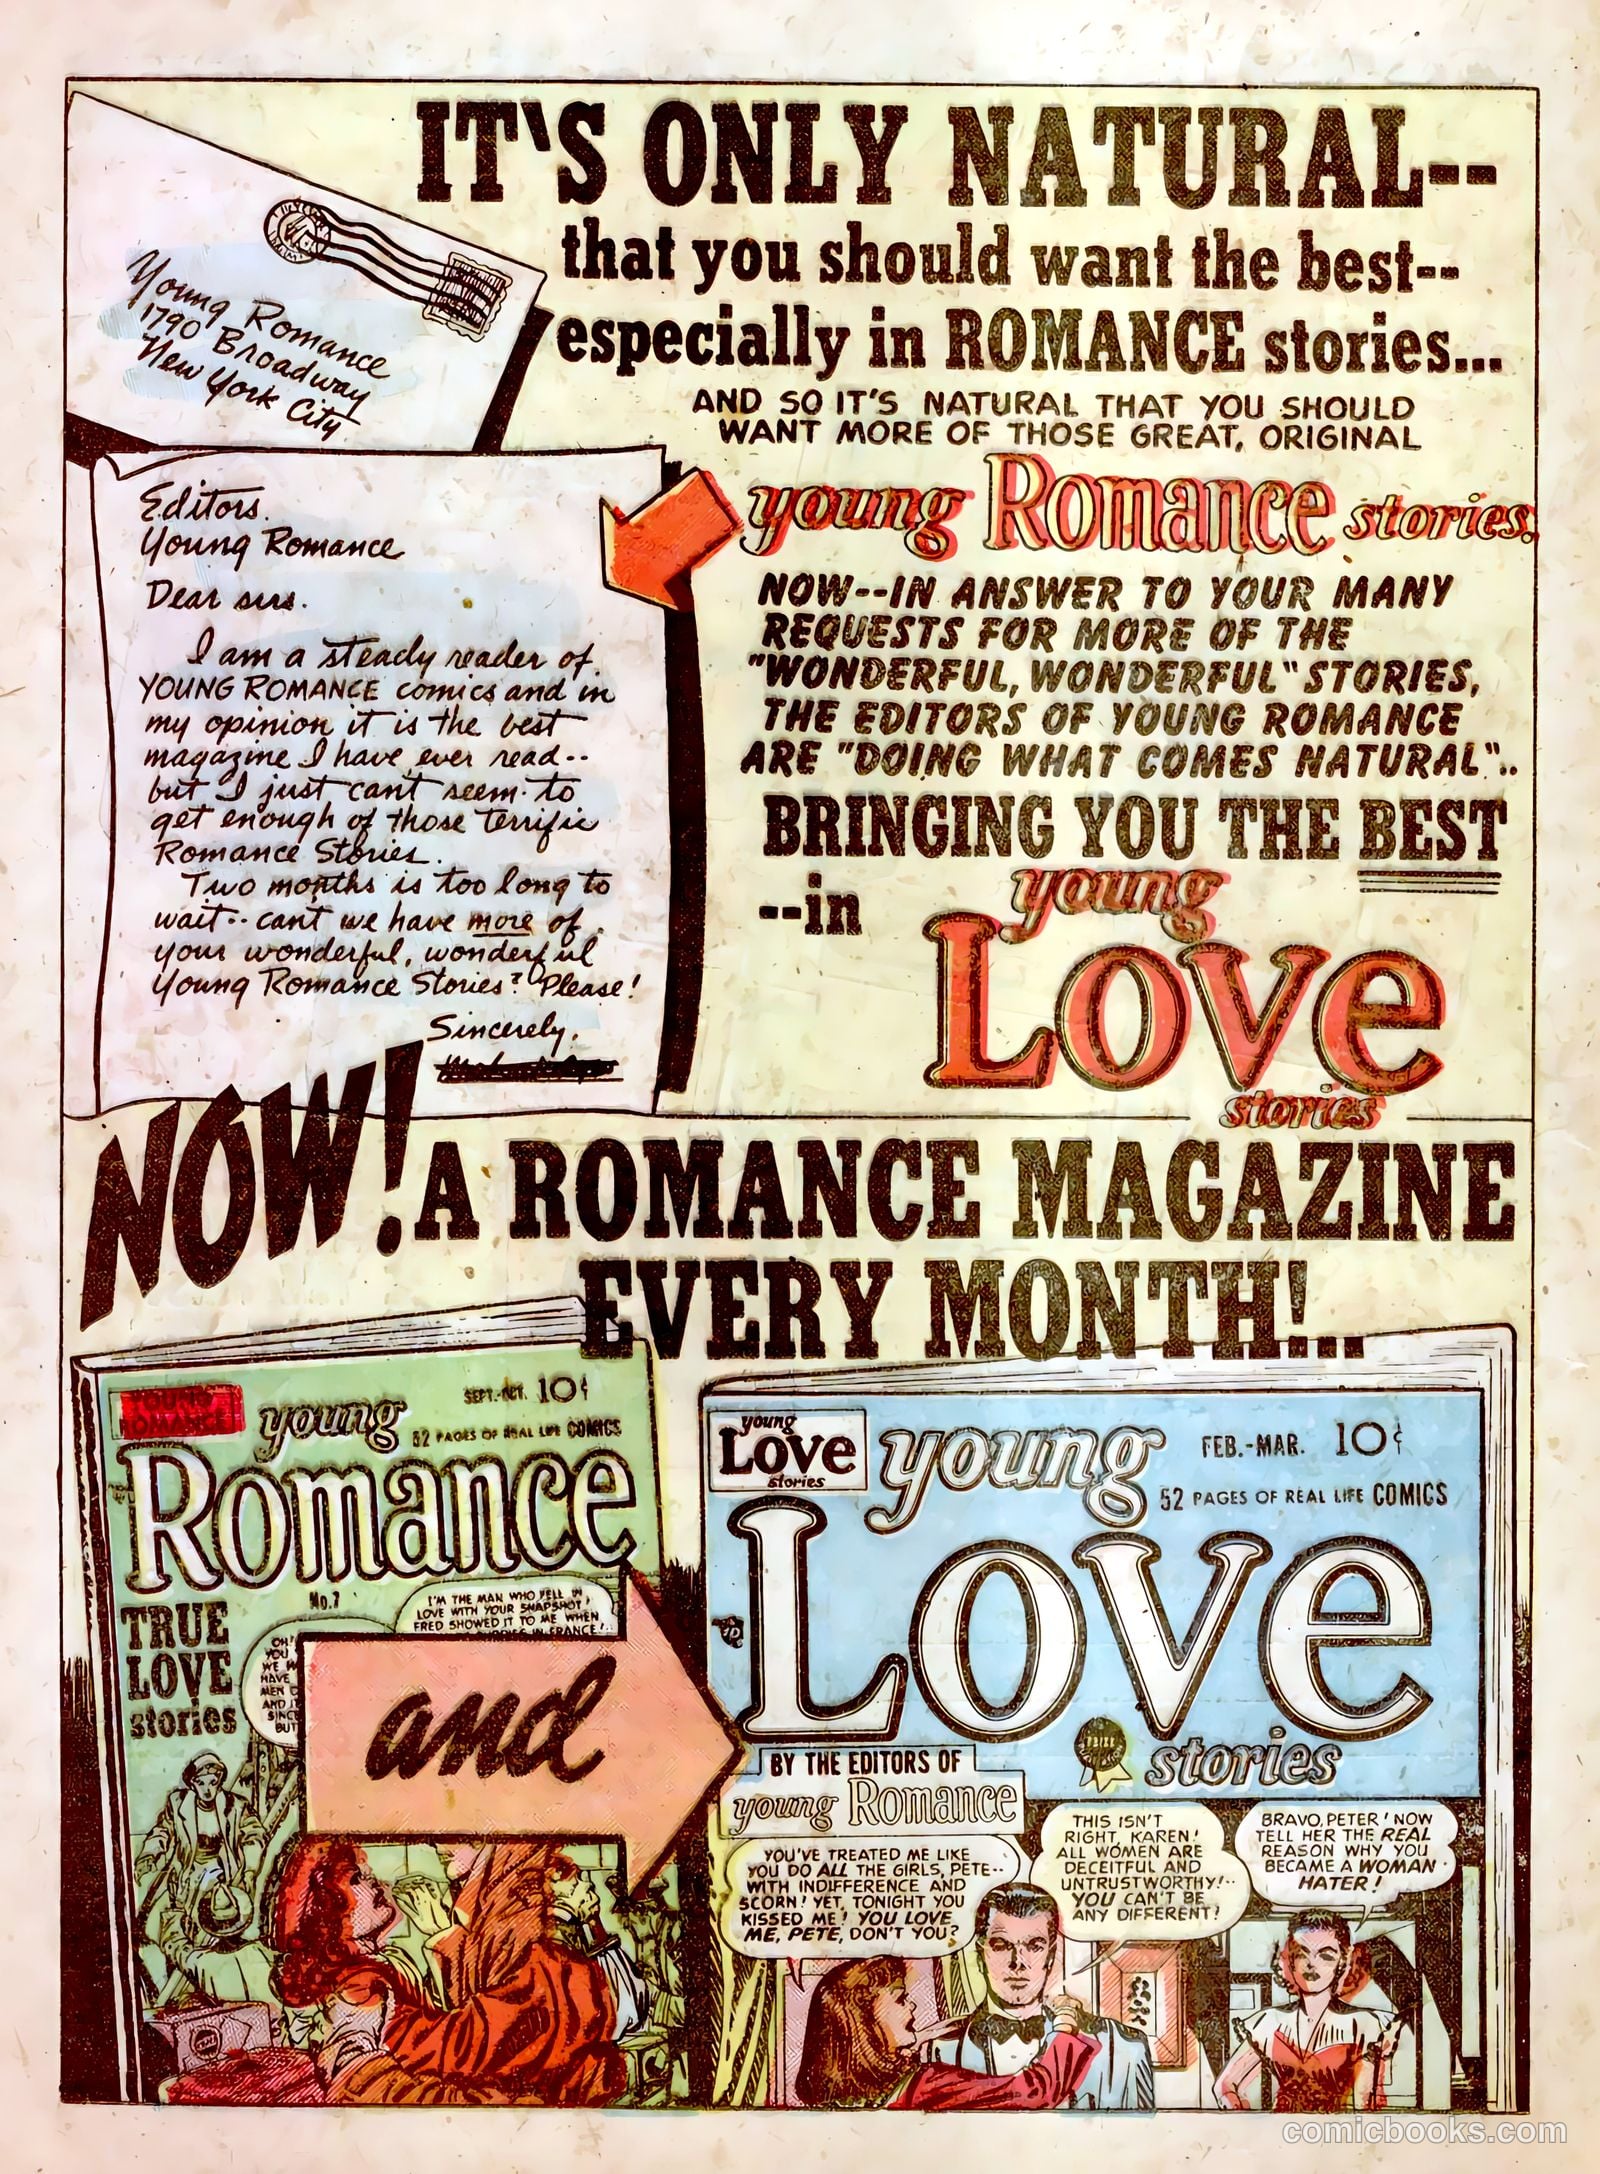 IT'S ONLY NATURAL--
that you should want the best--
especially in ROMANCE stories...
AND SO IT'S NATURAL THAT YOU SHOULD
WANT MORE OF THOSE GREAT, ORIGINAL
young Romance stories.
Young Romance
1790 Broadway
New York
City
Editors.
Young Romance
Dear sirs.
I am a steady reader of
YOUNG ROMANCE comics and in
my opinion it is the best
magazine I have ever read--
but I just can't seem to
get enough of those terrific
Romance Stories.
Two months is too long to
wait-- can't we have more of
your wonderful, wonderful
Young Romance Stories? Please!
Sincerely,
NOW--IN ANSWER TO YOUR MANY
REQUESTS FOR MORE OF THE
"WONDERFUL, WONDERFUL" STORIES,
THE EDITORS OF YOUNG ROMANCE
ARE "DOING WHAT COMES NATURAL"..
BRINGING YOU THE BEST
--in
young
Love
stories
NOW! A ROMANCE MAGAZINE
EVERY MONTH!...
YOUNG
ROMANCE
young
SEPT.-OCT. 10¢
52 PAGES OF REAL LIFE COMICS
Romance
No.7
TRUE
LOVE
stories
I'M THE MAN WHO FELL IN
LOVE WITH YOUR SNAPSHOT
FRED SHOWED IT TO ME WHEN
IN FRANCE!..
OH!
YOU
WE
HAVE
MEN
AND
SINCE
BUT
and
young
Love
stories
young
FEB.-MAR. 10¢
52 PAGES OF REAL LIFE COMICS
Love
stories
PRIZE
BY THE EDITORS OF
young Romance
YOU'VE TREATED ME LIKE
YOU DO ALL THE GIRLS, PETE--
WITH INDIFFERENCE AND
SCORN! YET, TONIGHT YOU
KISSED ME! YOU LOVE
ME, PETE, DON'T YOU?
THIS ISN'T
RIGHT, KAREN!
ALL WOMEN ARE
DECEITFUL AND
UNTRUSTWORTHY!--
YOU CAN'T BE
ANY DIFFERENT!
BRAVO, PETER! NOW
TELL HER THE REAL
REASON WHY YOU
BECAME A WOMAN
HATER!
comicbooks.com